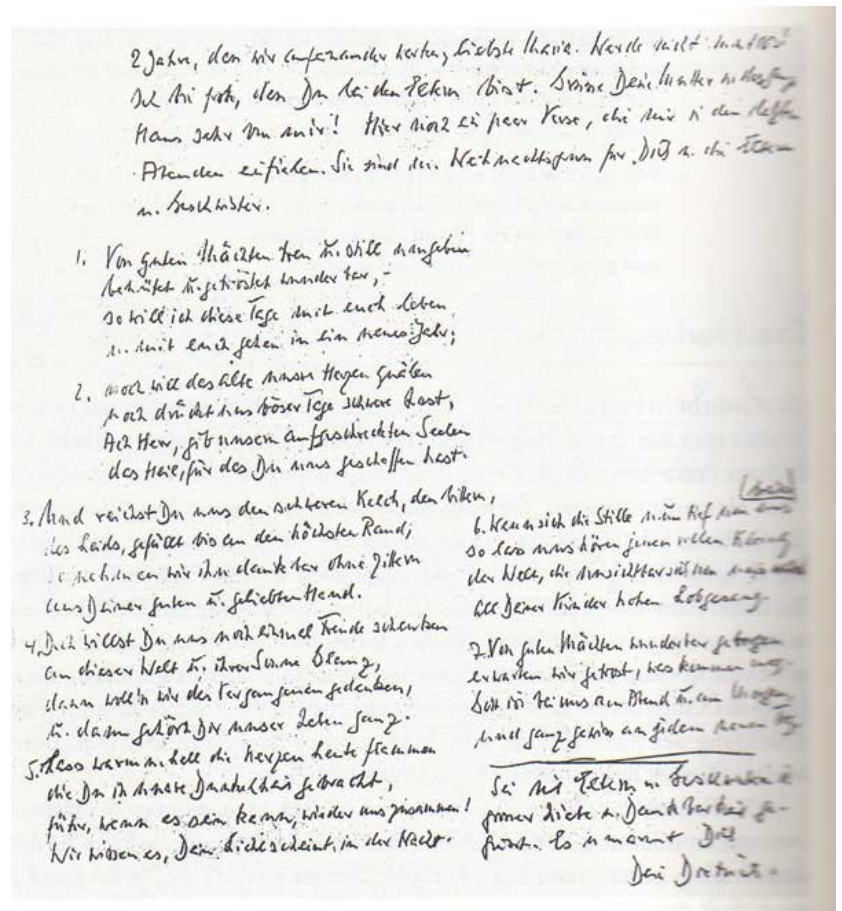 2 Jahre, dass wir aufeinander warten, liebste Maria. Werde nicht mutlos!
Ich bin froh, dass Du bei den Eltern bist. Grüsse Deine Mutter u. das ganze
Haus sehr von mir! Hier noch ein paar Verse, die mir in den letzten
Abenden einfielen. Sie sind der Weihnachtsgruss für Dich u. die Eltern
u. Geschwister.
1. Von guten Mächten treu u. still umgeben
behütet u. getröstet wunderbar, -
so will ich diese Tage mit euch leben
u. mit euch gehen in ein neues Jahr;
2. noch will das alte unsre Herzen quälen
noch drückt uns böser Tage schwere Last,
Ach Herr, gib unsern aufgescheuchten Seelen
das Heil, für das Du uns geschaffen hast.
3. Und reichst Du uns den schweren Kelch, den bittern,
des Leids, gefüllt bis an den höchsten Rand,
so nehmen wir ihn dankbar ohne Zittern
aus Deiner guten u. geliebten Hand.
4. Doch willst Du uns noch einmal Freude schenken
an dieser Welt u. ihrer Sonne Glanz,
dann woll'n wir des Vergangenen gedenken,
u. dann gehört Dir unser Leben ganz.
5. Lass warm u. hell die Kerzen heute flammen
die Du in unsre Dunkelheit gebracht,
führ, wenn es sein kann, wieder uns zusammen!
Wir wissen es, Dein Licht scheint in der Nacht.
6. Wenn sich die Stille nun tief um uns
so lass uns hören jenen vollen Klang
der Welt, die unsichtbar sich um uns
all Deiner Kinder hohen Lobgesang.
7. Von guten Mächten wunderbar geborgen
erwarten wir getrost, was kommen mag.
Gott ist bei uns am Abend u. am Morgen,
und ganz gewiss an jedem neuen Tag.
Sei mit Eltern u. Geschwistern in
grosser Liebe u. Dankbarkeit ge-
grüsst. Es umarmt Dich
Dein Dietrich.